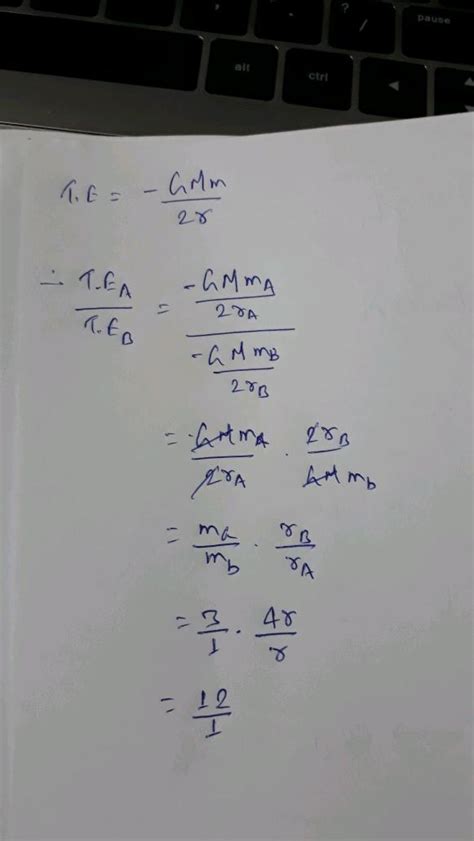 ? /
pause
alt
ctrl
T.E = - GMm / 2r
∴ T.E_A / T.E_B = (-GMm_A / 2r_A) / (-GMm_B / 2r_B)
= -GMm_A / 2r_A . 2r_B / GMm_b
= m_a / m_b . r_B / r_A
= 3/1 . 4r/r
= 12/1